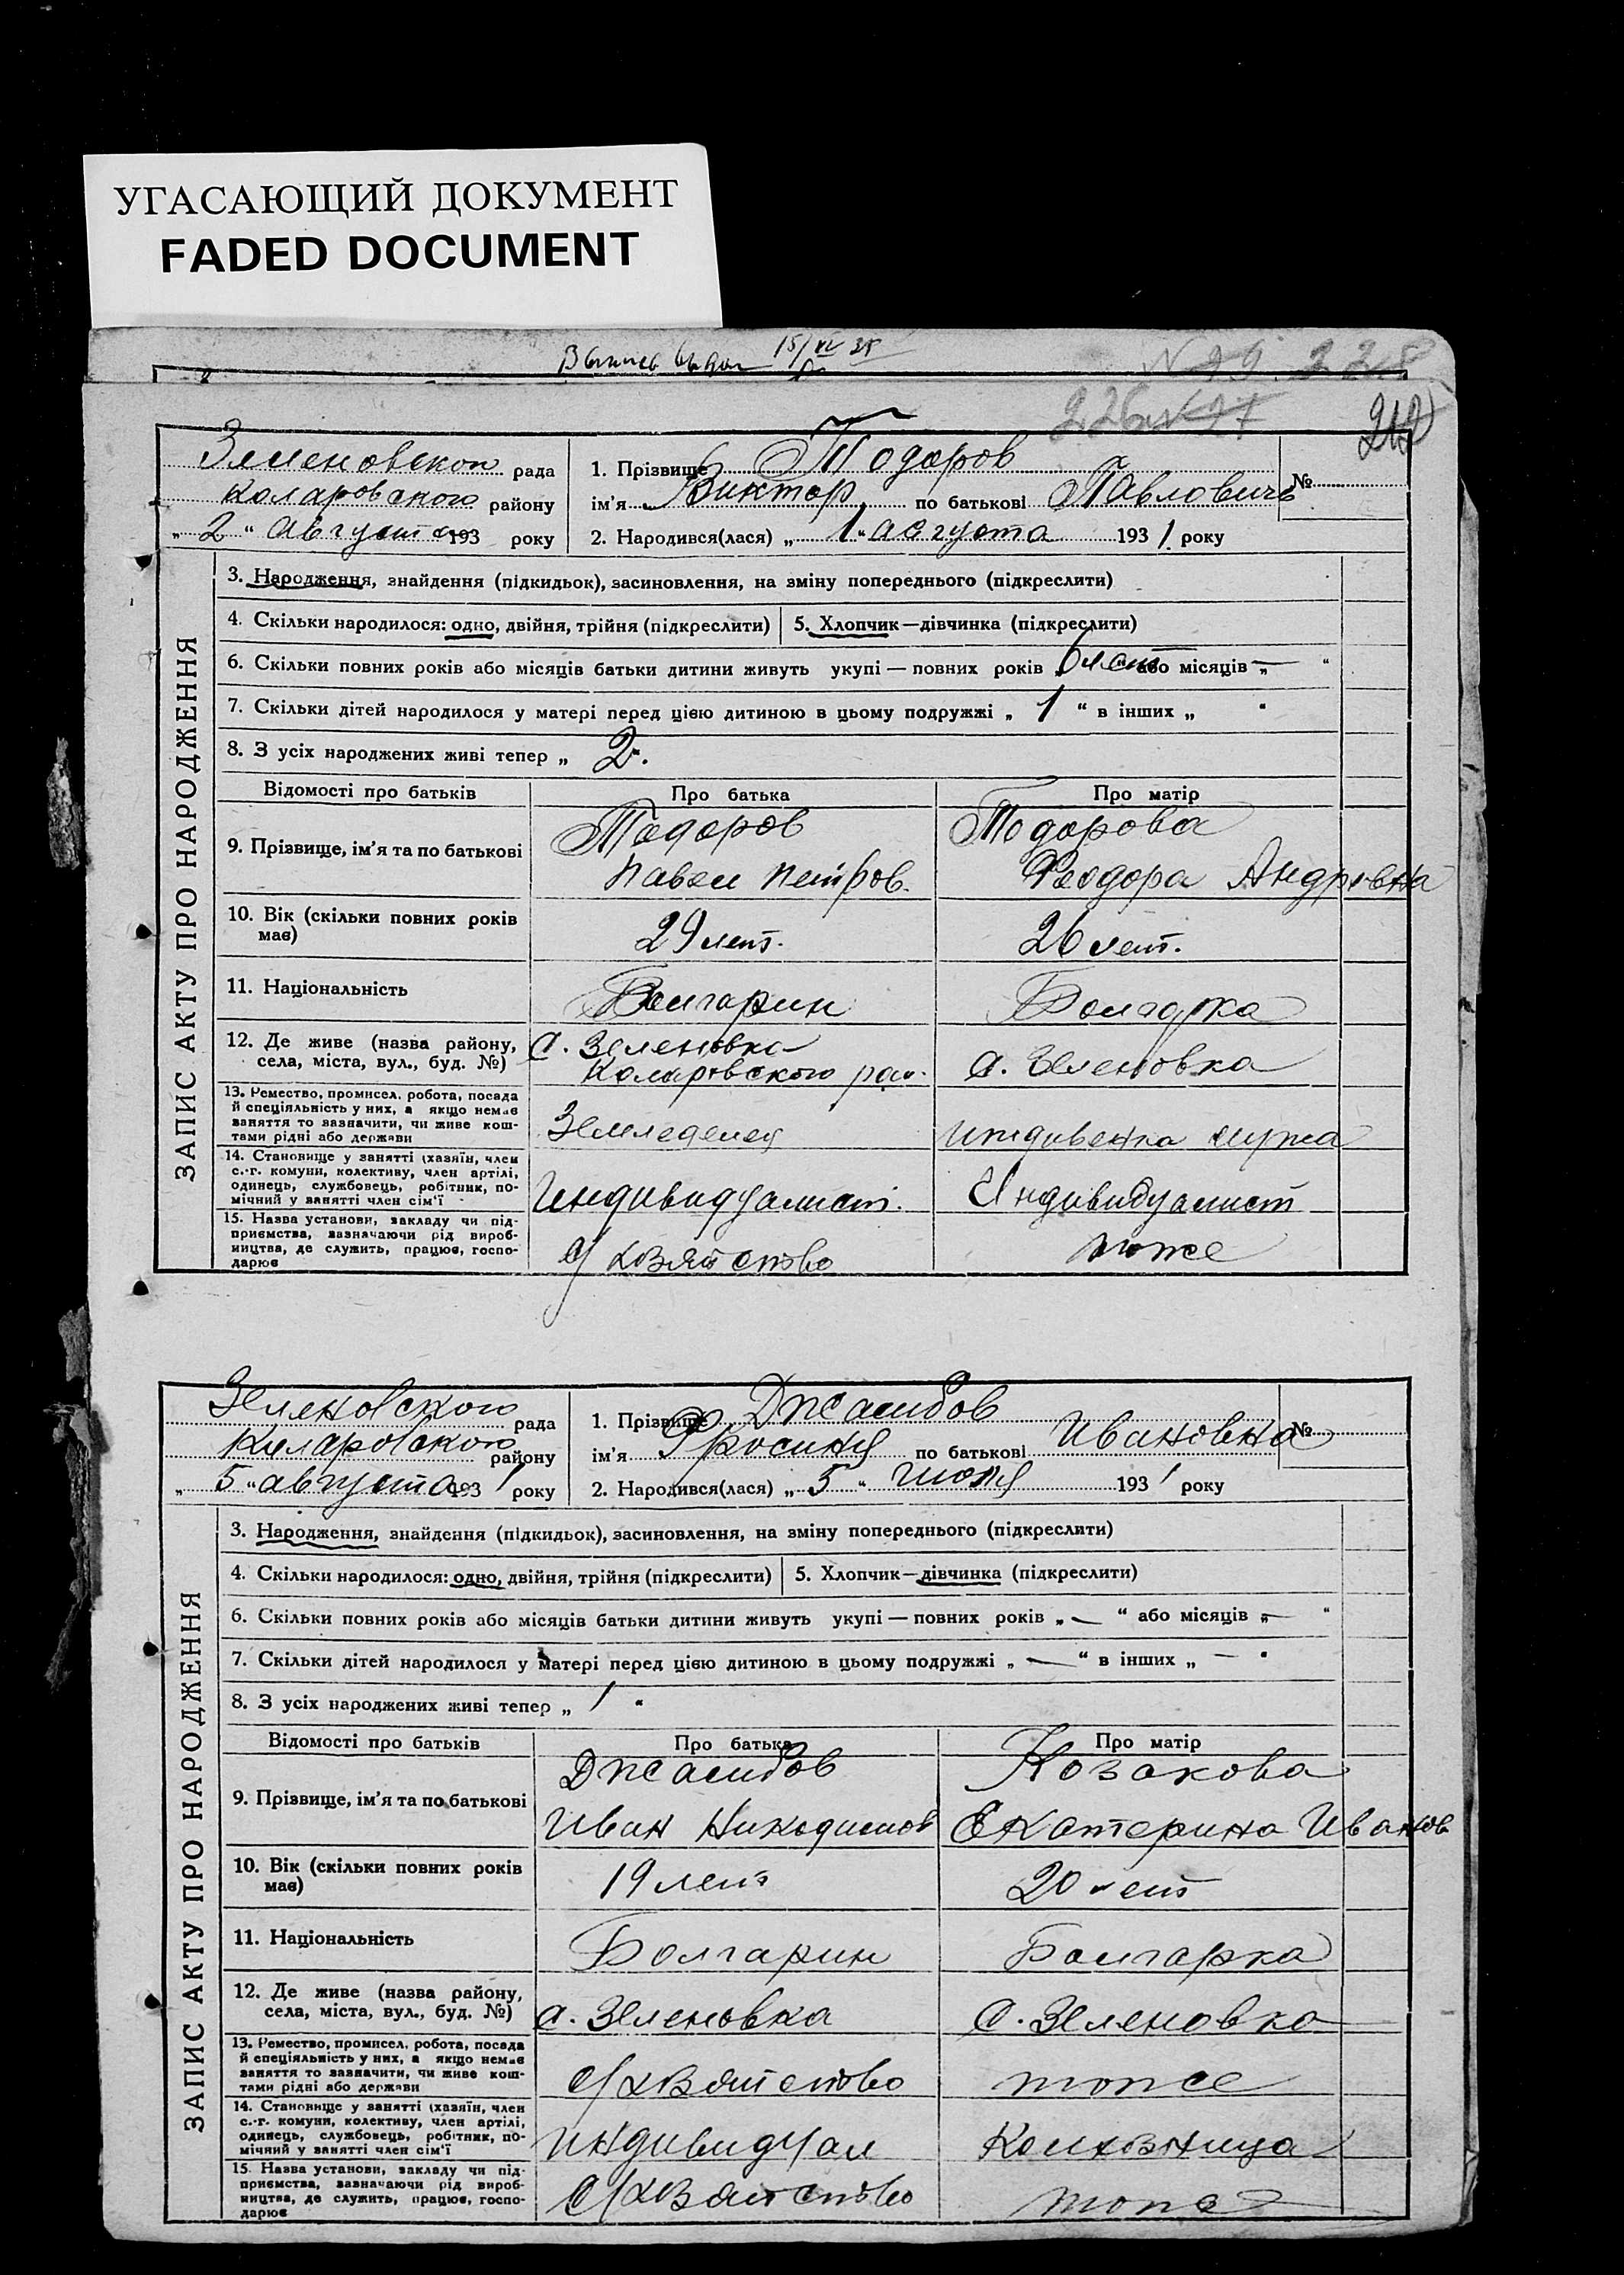 УГАСАЮЩИЙ ДОКУМЕНТ
FADED DOCUMENT
15/VI
226 № 27
Зеленовской рада
Коларовского району
„ 2 “ Августа 193 року
1. Прізвище Тодоров
ім'я Виктор по батькові Павловичь
№
2. Народився(лася) „ 1 “ августа 1931 року
ЗАПИС АКТУ ПРО НАРОДЖЕННЯ
3. Народження, знайдення (підкидьок), засиновлення, на зміну попереднього (підкреслити)
4. Скільки народилося: одно, двійня, трійня (підкреслити)
5. Хлопчик—дівчинка (підкреслити)
6. Скільки повних років або місяців батьки дитини живуть укупі — повних років „ 6 лет “ або місяців „ — “
7. Скільки дітей народилося у матері перед цією дитиною в цьому подружжі „ 1 “ в інших „ “
8. З усіх народжених живі тепер „ 2 “.
Відомості про батьків Про батька Про матір
9. Прізвище, ім'я та по батькові
Тодоров
Павел Петров.
Тодорова
Феодора Андревна
10. Вік (скільки повних років має)
29 лет.
26 лет.
11. Національність
Болгарин
Болгарка
12. Де живе (назва району, села, міста, вул., буд. №)
с. Зеленовка
Коларовского рай.
с. Зеленовка
13. Ремество, промисел, робота, посада
й спеціяльність у них, а якщо немає
заняття то зазначити, чи живе кош-
тами рідні або держави
Земледелец
иждивенка мужа
14. Становище у занятті (хазяїн, член
с.-г. комуни, колективу, член артілі,
одинець, службовець, робітник, по-
мічний у занятті член сім'ї
Индивидуалист.
Индивидуалист
15. Назва установи, закладу чи під-
приємства, зазначаючи рід вироб-
ництва, де служить, працює, госпо-
дарює
с/хозяйство
тоже
Зеленовского рада
Коларовского району
„ 5 “ августа 1931 року
1. Прізвище Джамбов
ім'я Фросиня по батькові Ивановна
№
2. Народився(лася) „ 5 “ 1931 року
ЗАПИС АКТУ ПРО НАРОДЖЕННЯ
3. Народження, знайдення (підкидьок), засиновлення, на зміну попереднього (підкреслити)
4. Скільки народилося: одно, двійня, трійня (підкреслити)
5. Хлопчик—дівчинка (підкреслити)
6. Скільки повних років або місяців батьки дитини живуть укупі — повних років „ — “ або місяців „ — “
7. Скільки дітей народилося у матері перед цією дитиною в цьому подружжі „ — “ в інших „ — “
8. З усіх народжених живі тепер „ 1 “
Відомості про батьків Про батька Про матір
9. Прізвище, ім'я та по батькові
Джамбов
Иван Никодимов
Козакова
Екатерина Иванов
10. Вік (скільки повних років має)
19 лет
20 лет
11. Національність
Болгарин
Болгарка
12. Де живе (назва району, села, міста, вул., буд. №)
с. Зеленовка
с. Зеленовка
13. Ремество, промисел, робота, посада
й спеціяльність у них, а якщо немає
заняття то зазначити, чи живе кош-
тами рідні або держави
с/хозяйство
тоже
14. Становище у занятті (хазяїн, член
с.-г. комуни, колективу, член артілі,
одинець, службовець, робітник, по-
мічний у занятті член сім'ї
индивидуал
Колхозница
15. Назва установи, закладу чи під-
приємства, зазначаючи рід вироб-
ництва, де служить, працює, госпо-
дарює
с/хозяйство
тоже